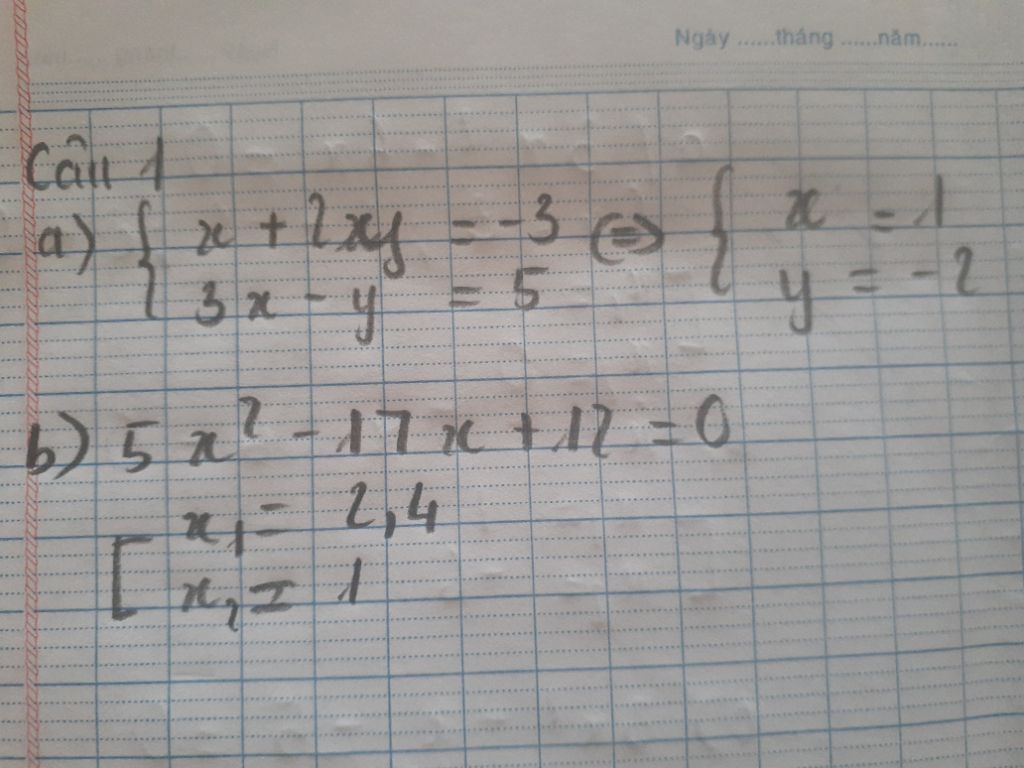 Ngày ......tháng ......năm......
Câu 1
a) { x + 2xy = -3 <=> { x = 1
3x - y = 5 y = -2
b) 5x² - 17x + 12 = 0
[ x₁ = 2,4
x₂ = 1